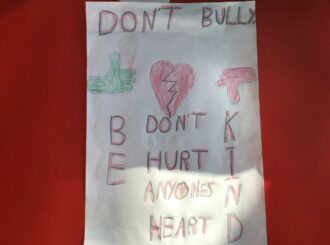 DON'T BULLY
BE
DON'T
HURT
ANYONES
HEART
KIND